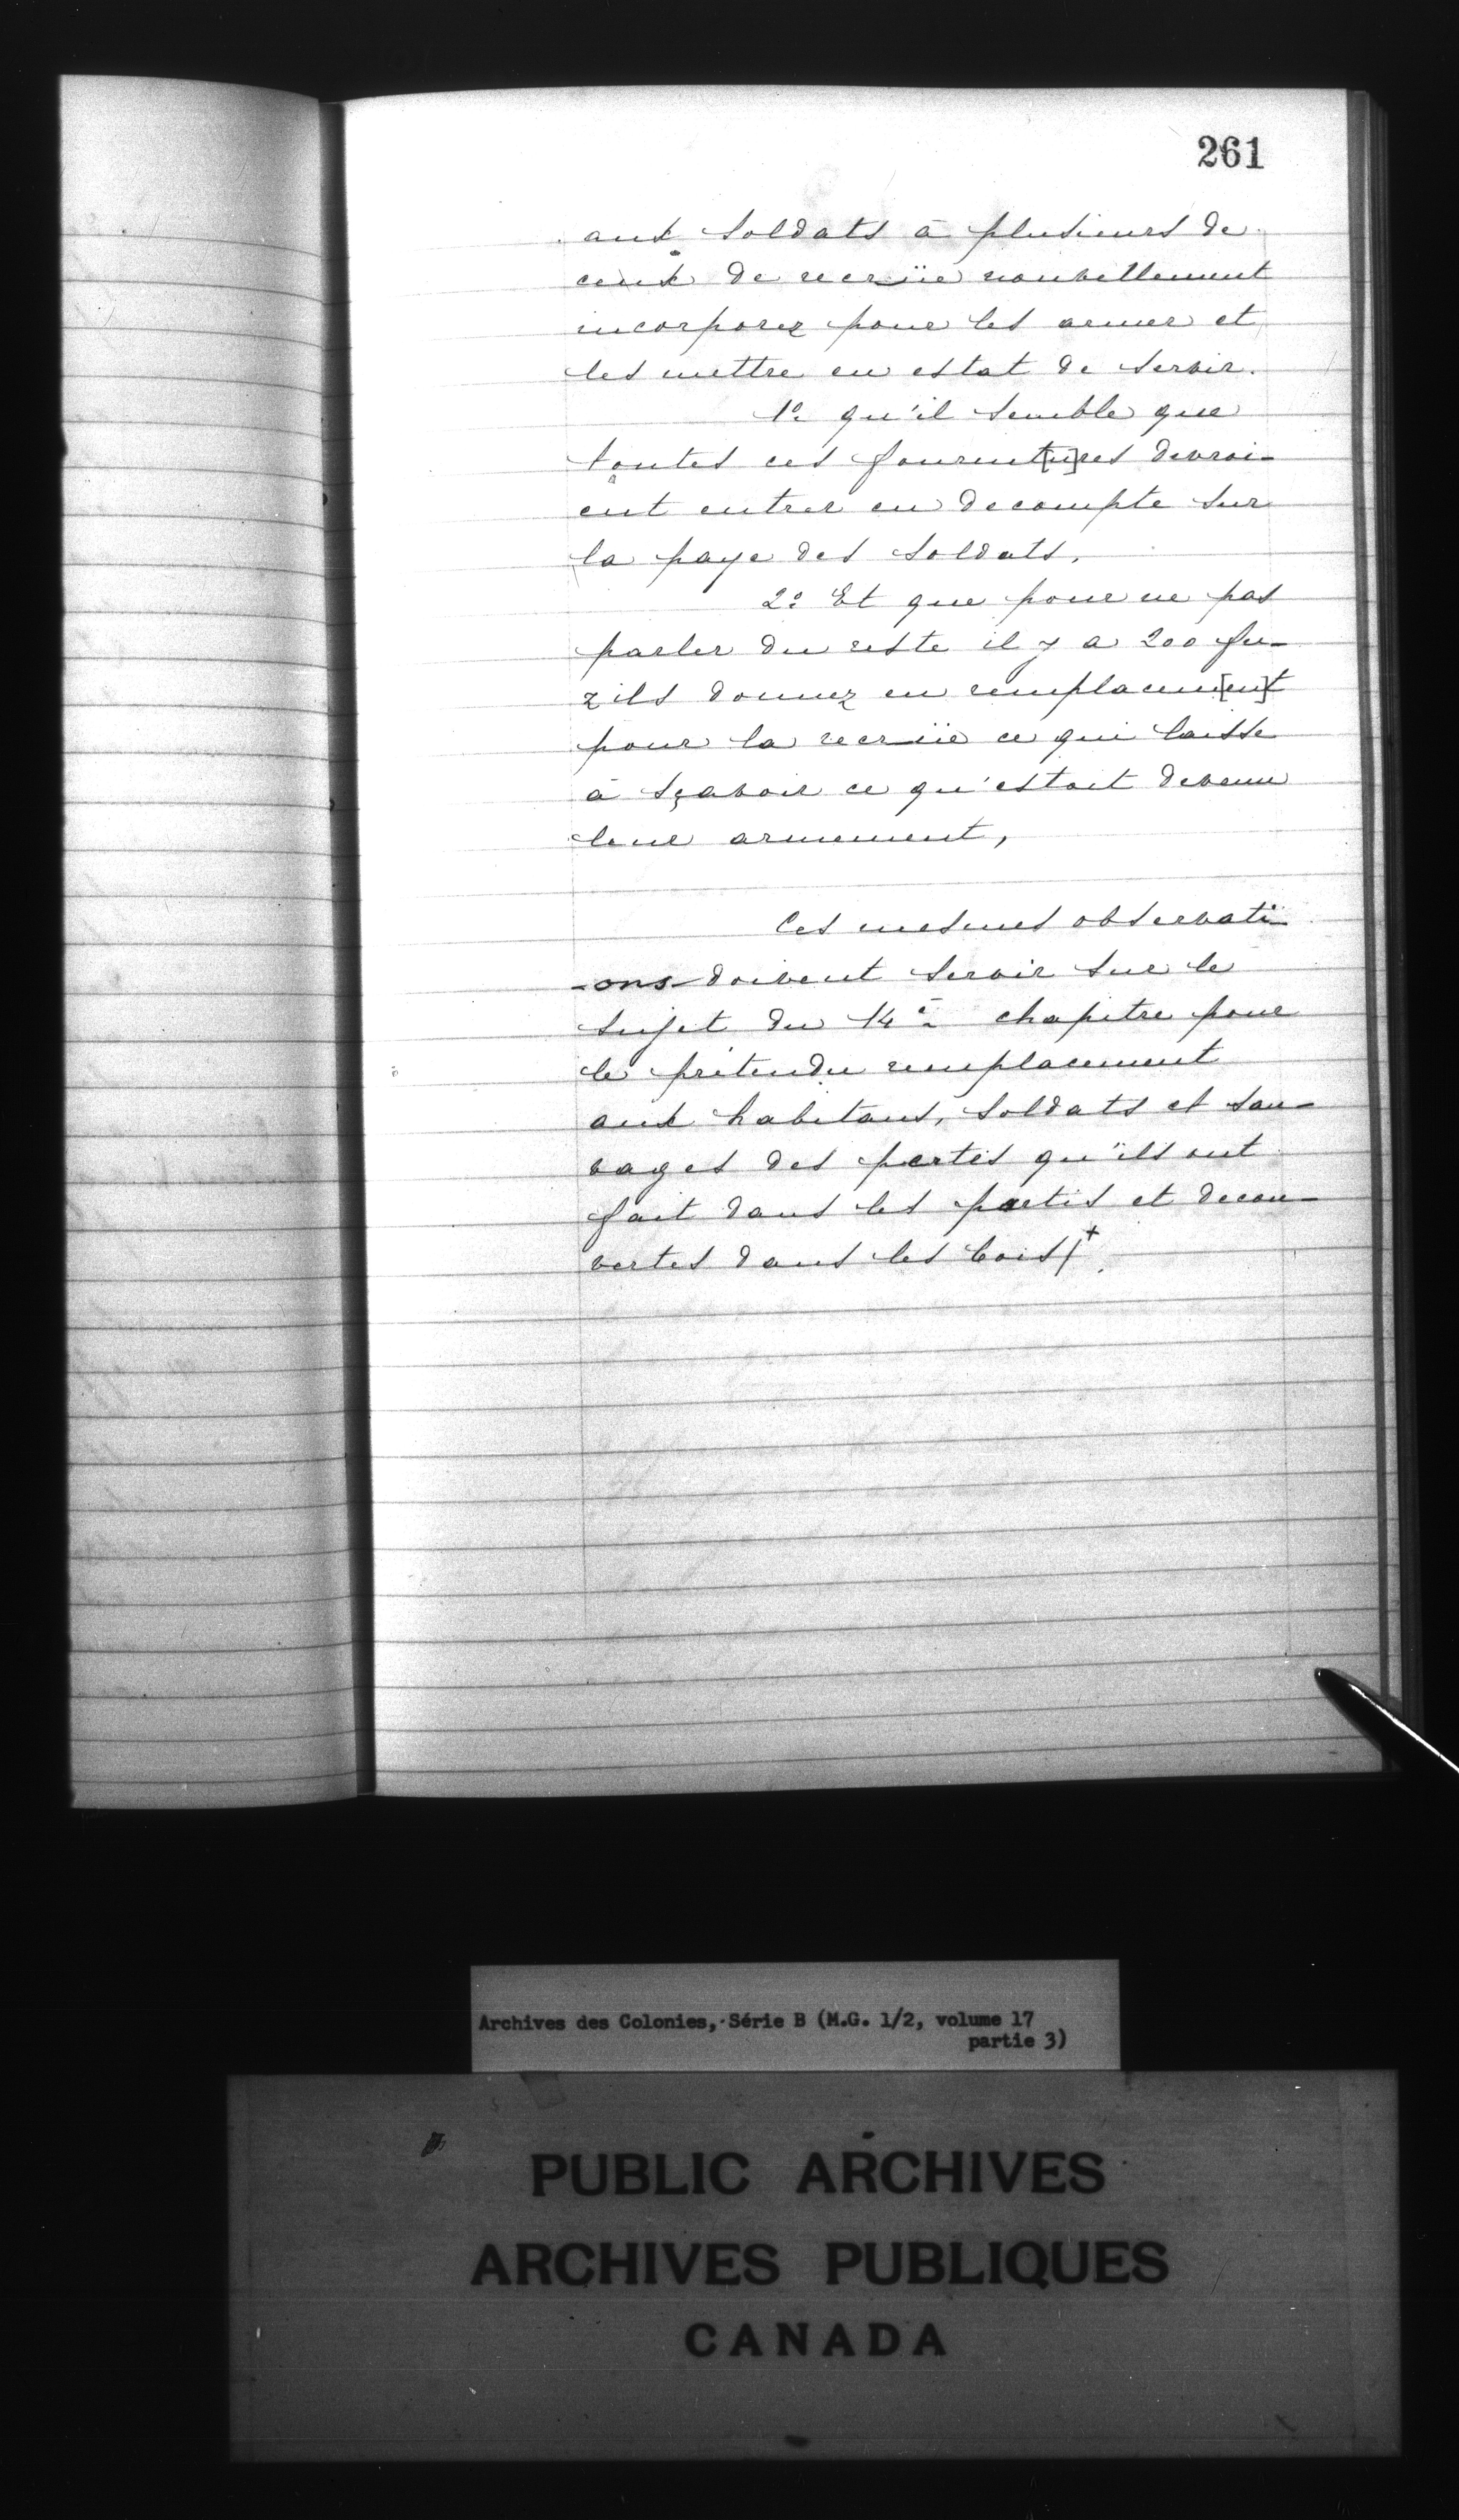 261
aux soldats à plusieurs de
ceux de recrüe nouvellement
incorporez pour les armer et
les mettre en estat de servir.
1º qu'il semble que
toutes ces fournit[u]res devroi-
ent entrer en decompte sur
la paye des soldats.
2º Et que pour ne pas
parler du reste il y a 200 fu-
zils donnez en remplacem[en]t
pour la recrüe ce qui laisse
à sçavoir ce qu'estoit devenu
leur armement,
Ces mesmes observati-
-ons doivent servir sur le
sujet du 14e chapitre pour
le prétendu remplacement
aux habitans, soldats et sau-
vages des pertes qu'ils ont
fait dans les partis et decou-
vertes dans les bois/+.
Archives des Colonies, Série B (M.G. 1/2, volume 17
partie 3)
PUBLIC ARCHIVES
ARCHIVES PUBLIQUES
CANADA